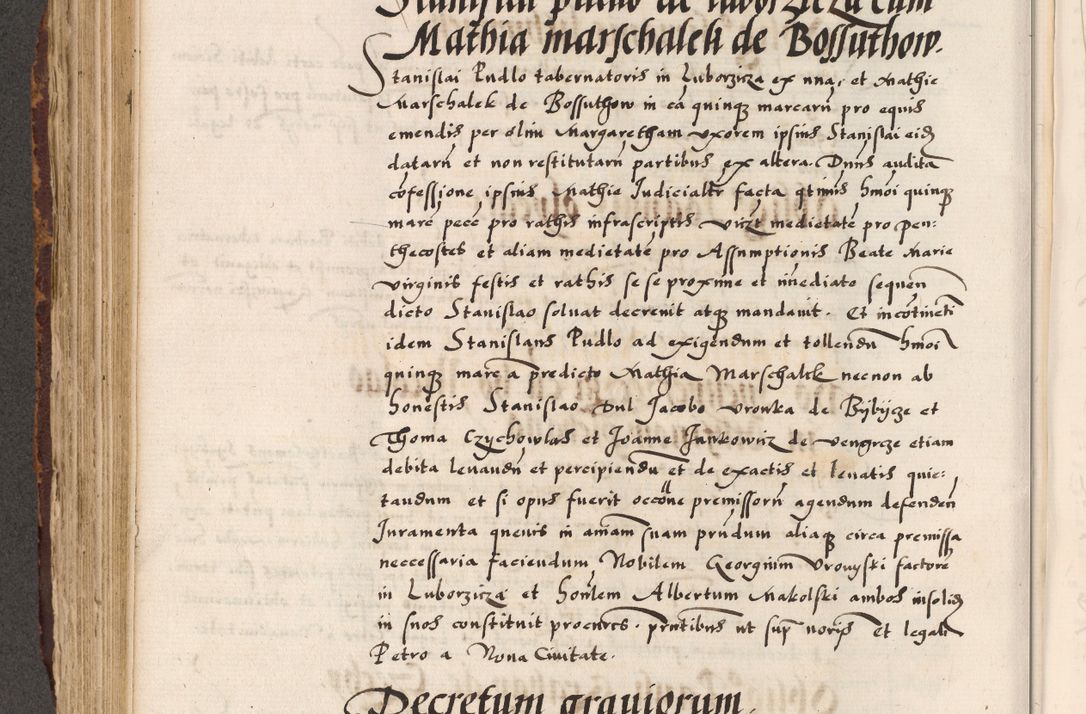 Stanislai pudlo de luborzicza cum
Mathia marschalek de Bossuthow.
Stanislai Pudlo tabernatoris in Luborzicza ex una, et Mathie
Marschalek de Bossuthow in ea quinq marcarū pro equis
emendis per olim Margaretham uxorem ipsius Stanislai eid
datarū et non restitutarū partibus ex altera. Dnūs audita
cōfessione ipsius Mathie Iudicialtr facta qtimus hmōi quinq
marc pecē pro rathis infrascriptis vizt medietatē pro pen:
thecostes et aliam medietatē pro Assumptionis Beate Marie
virginis festis et rathis se se proxime et īmediato sequen
dicto Stanislao soluat decrenit atq mandauit. Et incōtineti
idem Stanislaus Pudlo ad exigendum et tollendū hmōi
quinq marc a predicto Mathia Marschalek necnon ab
honestis Stanislao Dul Jacobo Vronka de Bybycze et
Thoma Czychowlas et Joanne Jankowicz de Vengrcze etiam
debita leuandū et percipiendū et de exactis et leuatis quie:
tandum et si opus fuerit occōne premissorū agendum defenden
Iuramenta queuis in aīmam suam prūdum aliaq circa premissa
neccessaria faciendum Nobilem Georgium Vrowski factorē
in Luborzicza et honlem Albertum Makolski ambos insolid
in suos constituit procurcs. prntibus ut sup noris Et legali
Petro a Nona Ciuitate.
Decretum grauiorum.